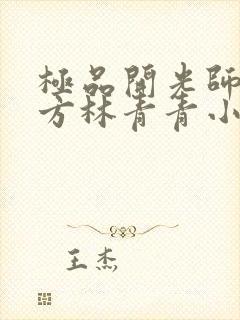 極品開光師
方林青青小
王杰